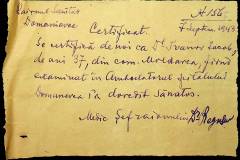 Raionul Sanitar
Domanievca
N 156
7 Septem. 1943
Certificat.
Se certifică de noi că Dl Ivanov Iacob,
de ani 37, din com. Moldovca, fiind
examinat în Ambulatorul Spitalului
s'a dovedit sănătos.
Medic Șef raionului Dr